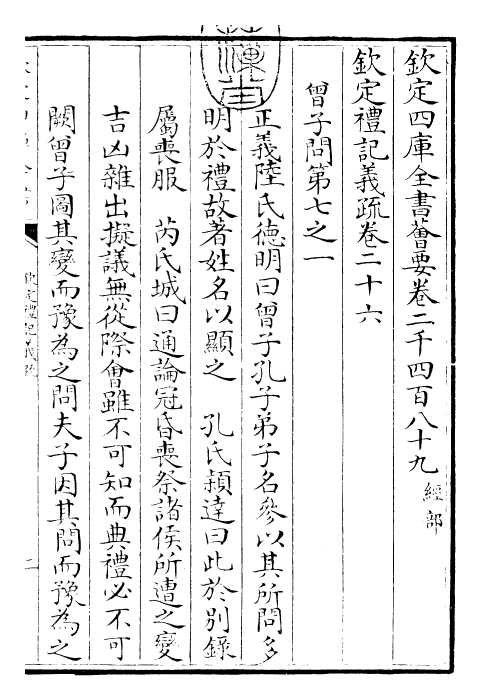 欽定四庫全書薈要卷二千四百八十九 經部
欽定禮記義疏卷二十六
曾子問第七之一
正義陸氏德明曰曾子孔子弟子名參以其所問多
明於禮故著姓名以顯之 孔氏穎達曰此於別錄
屬喪服 芮氏城曰通論冠昏喪祭諸侯所遭之變
吉凶雜出擬議無從際會雖不可知而典禮必不可
闕曾子圖其變而豫為之問夫子因其問而豫為之